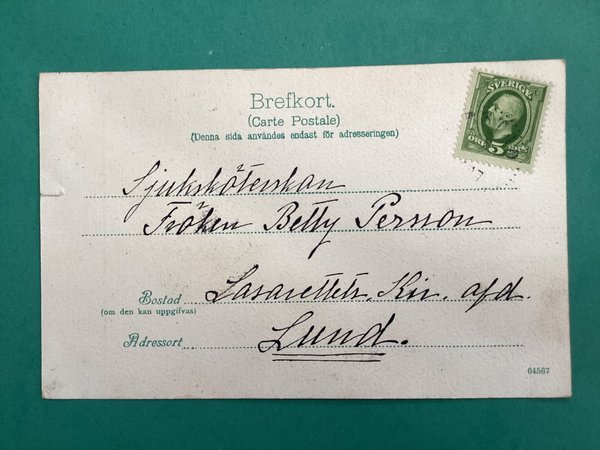 Brefkort.
(Carte Postale)
(Denna sida användes endast för adresseringen)
SVERIGE
5
ÖRE
17
Sjuksköterskan
Fröken Betty Persson
Bostad Lasarettets. Kir. afd.
(om den kan uppgifvas)
Adressort Lund.
64567